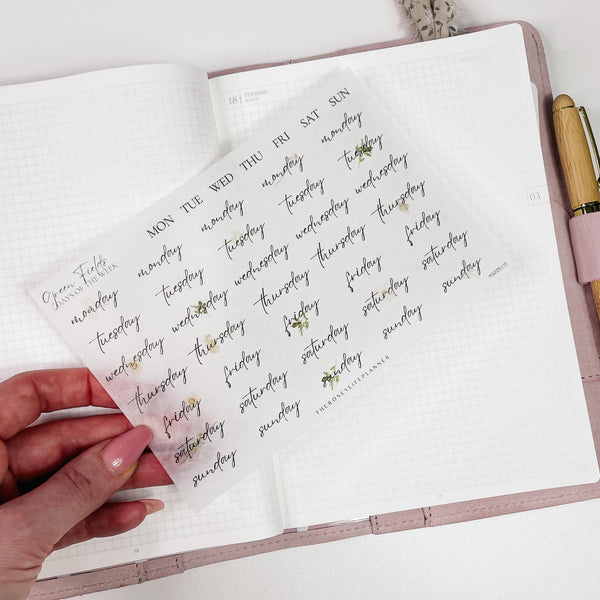 18 TUESDAY
MARCH
03
Green Fields
DAYS OF THE WEEK
MON TUE WED THU FRI SAT SUN
monday monday monday monday monday
tuesday tuesday tuesday tuesday tuesday
wednesday wednesday wednesday wednesday wednesday
thursday thursday thursday thursday thursday
friday friday friday friday friday
saturday saturday saturday saturday saturday
sunday sunday sunday sunday sunday
THEROSEYLIFEPLANNER